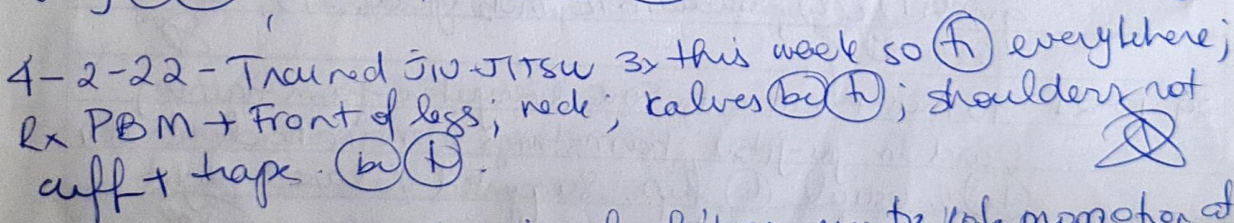 4-2-22 - Trained JIU-JITSU 3x this week so (h) everywhere;
Rx PBM + Front of legs; neck; kalves (bc) (h); shoulders, rot
cuff + traps. (bc) (h).